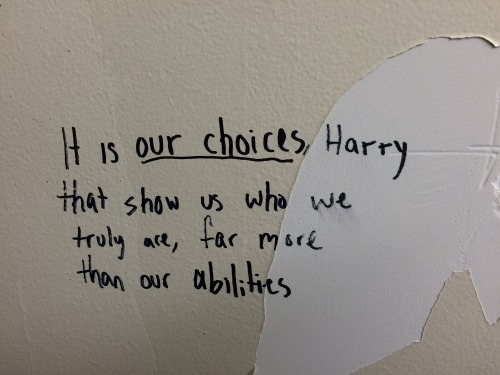 It is our choices, Harry
that show us who we
truly are, far more
than our abilities